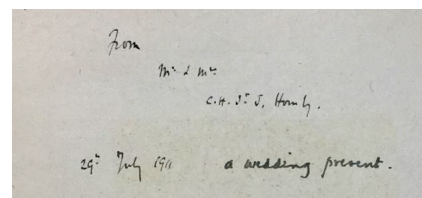 From
Mr & Mrs
C.H. St J. Hornby.
29th July 1911 a wedding present.